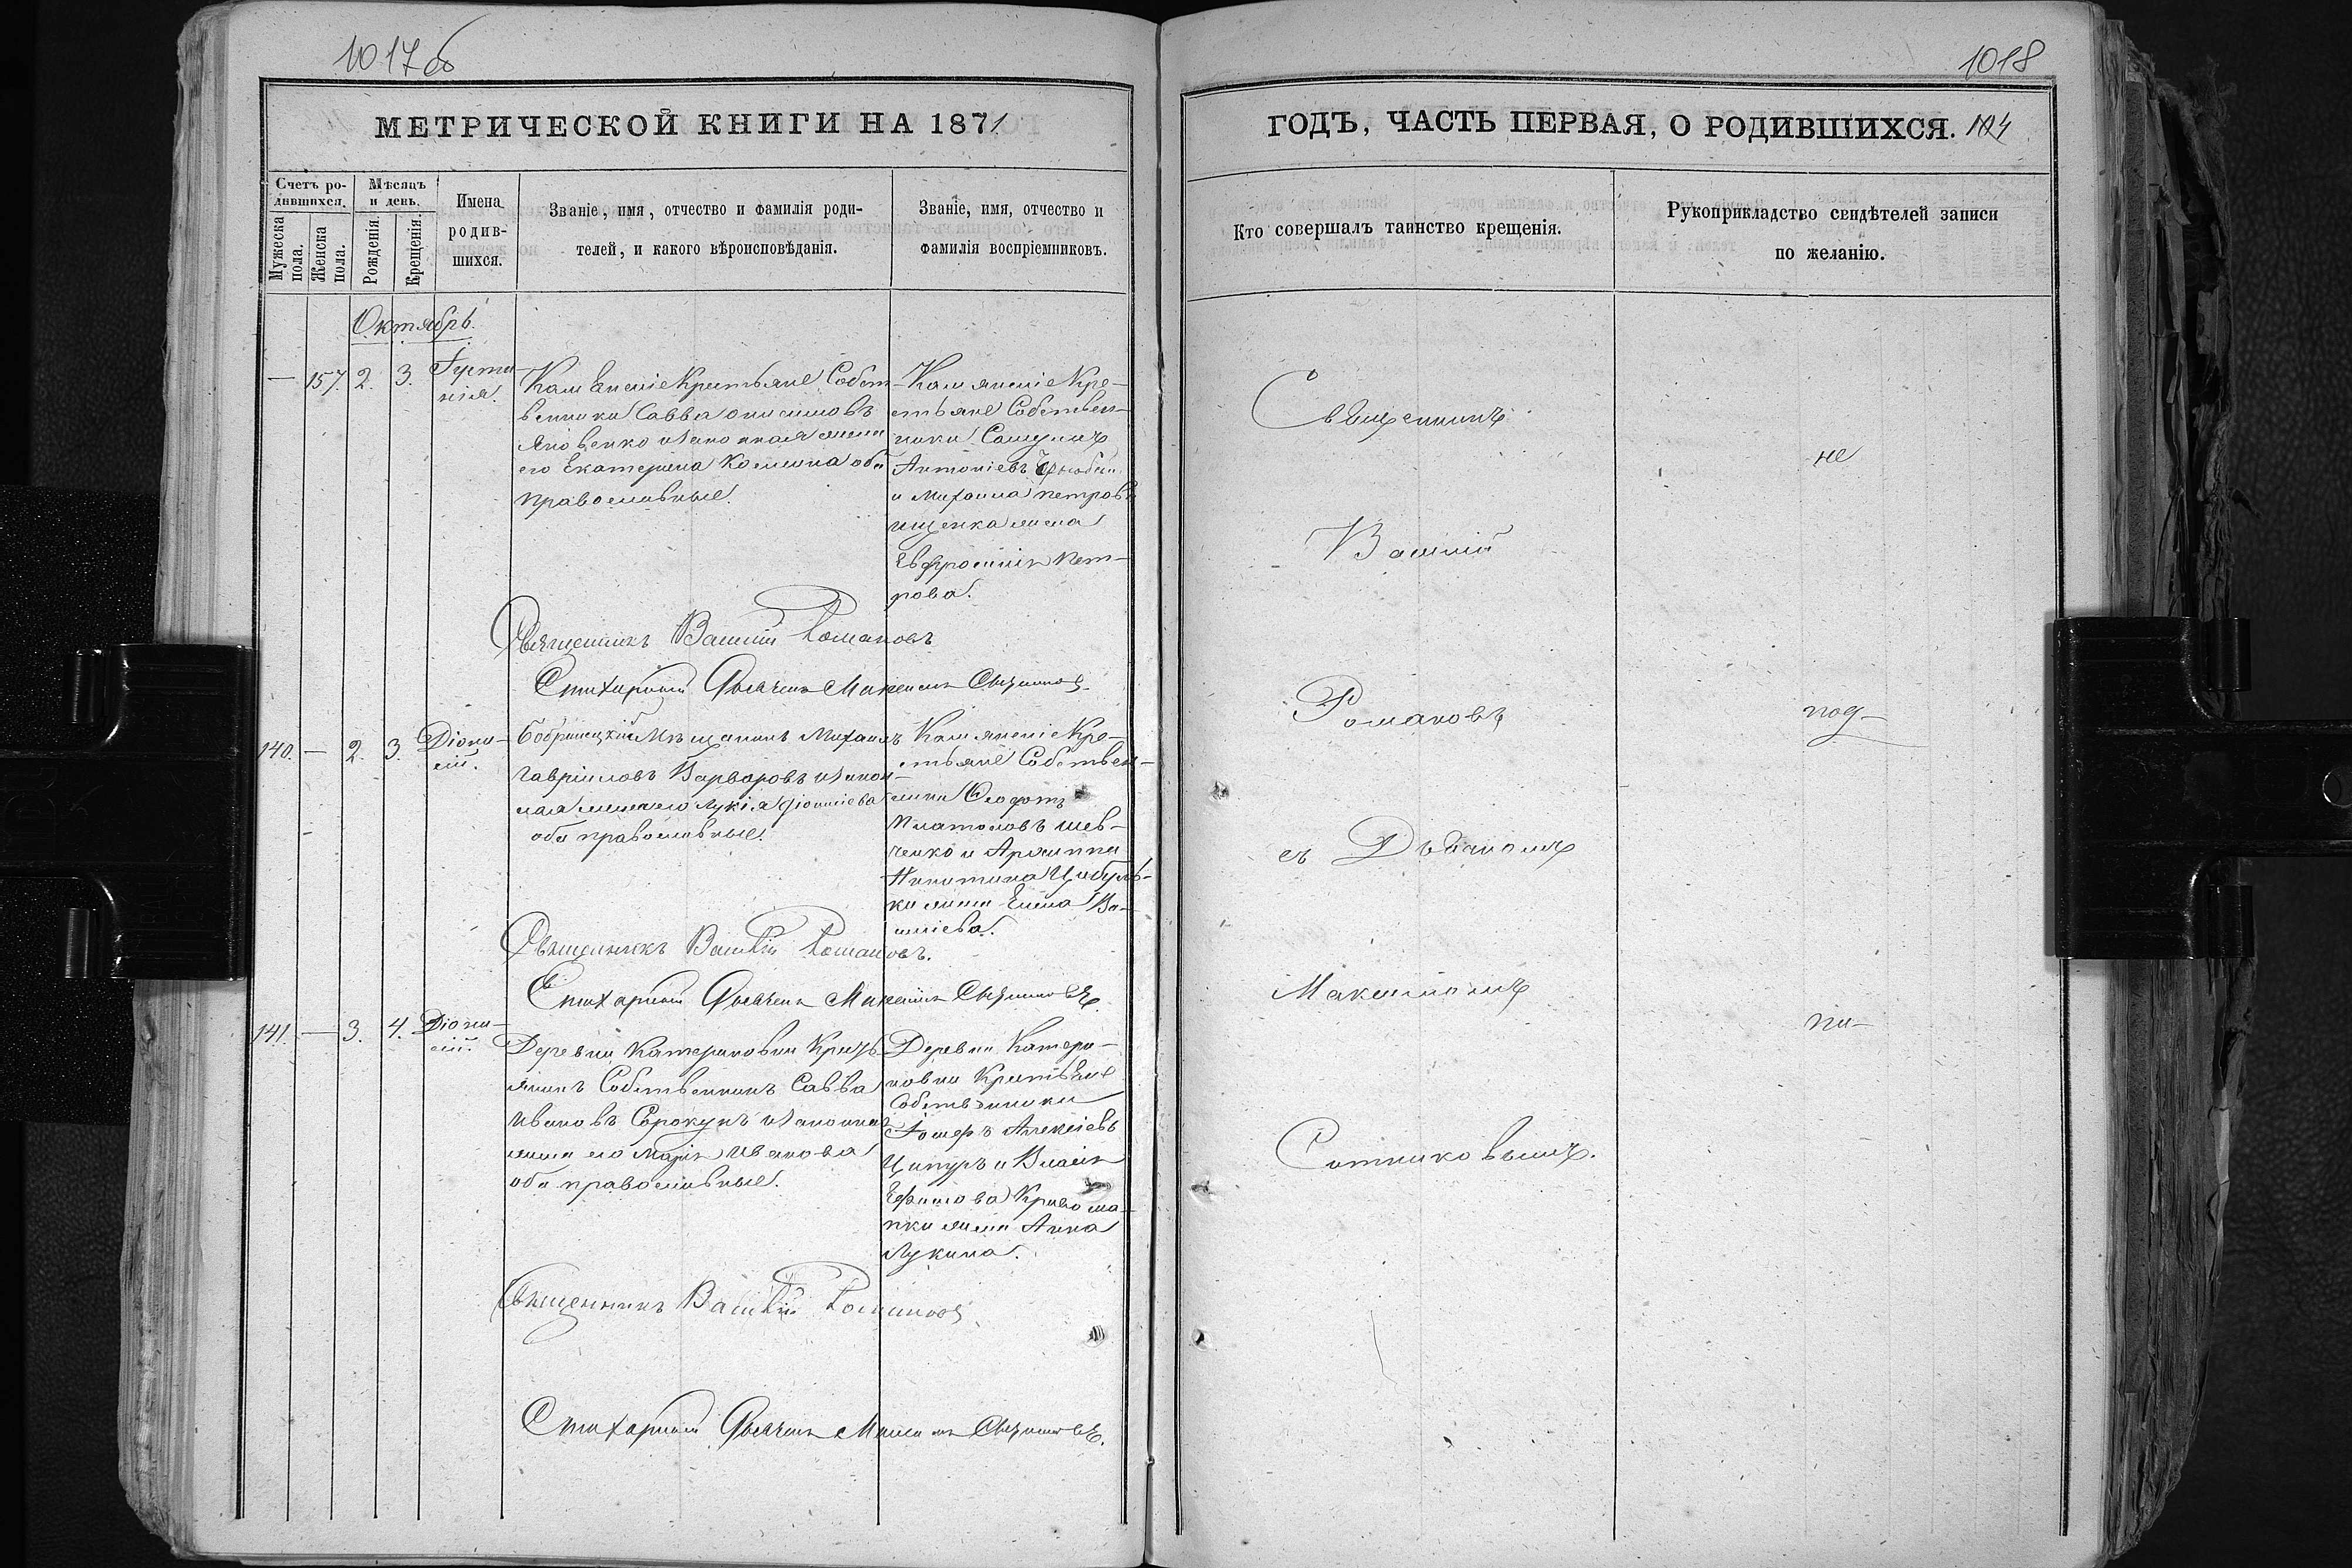 1017 об
МЕТРИЧЕСКОЙ КНИГИ НА 1871
Счетъ ро-
дившихся.
Мѣсяцъ
и день.
Мужеска
пола.
Женска
пола.
Рожденія.
Крещенія.
Имена
родив-
шихся.
Званіе, имя, отчество и фамилія роди-
телей, и какого вѣроисповѣданія.
Званіе, имя, отчество и
фамилія воспріемниковъ.
Октябрь.
— 157. 2. 3.
нія.
Крестьяне Собст-
венники Савва
Яковенко и законная жена
его Екатерина оба
православные.
Кре-
стьяне Собствен-
ники
Антоніевъ
и Михаила петровъ
ищенка жена
Евфросинія Пет-
рова.
Священникъ Василій Романовъ
Стихарный Дьячекъ Максимъ Ситниковъ.
140. — 2. 3. Діони-
сій.
Бобринецкій Мѣщанинъ Михаилъ
Гавріиловъ Варваровъ и закон-
ная жена его Лукія Діонисіева
оба православные.
Кре-
стьяне Собствен-
ники Ѳеодотъ
Платоновъ Шев-
ченко и
Никитина Цибуль-
ки жена Елена Ва-
силіева.
Священникъ Василій Романовъ.
Стихарный Дьячекъ Максимъ Ситниковъ.
141. — 3. 4. Діони-
сій.
Деревни Катериновки Кресть-
янинъ Собственникъ Савва
Ивановъ Сорокунъ и законная
жена его Марія Иванова
оба православные.
Деревни Катери-
новки Крестьяне
Собственники
Алексіевъ
и
Ефимова
жена Анна
Лукина.
Священникъ Василій Романовъ
Стихарный Дьячекъ Максимъ Ситниковъ.
1018
ГОДЪ, ЧАСТЬ ПЕРВАЯ, О РОДИВШИХСЯ. 104
Кто совершалъ таинство крещенія.
Рукоприкладство свидѣтелей записи
по желанію.
Священникъ
не
Василій
Романовъ
под-
съ Дьячкомъ
Максимомъ
пи-
Ситниковымъ.